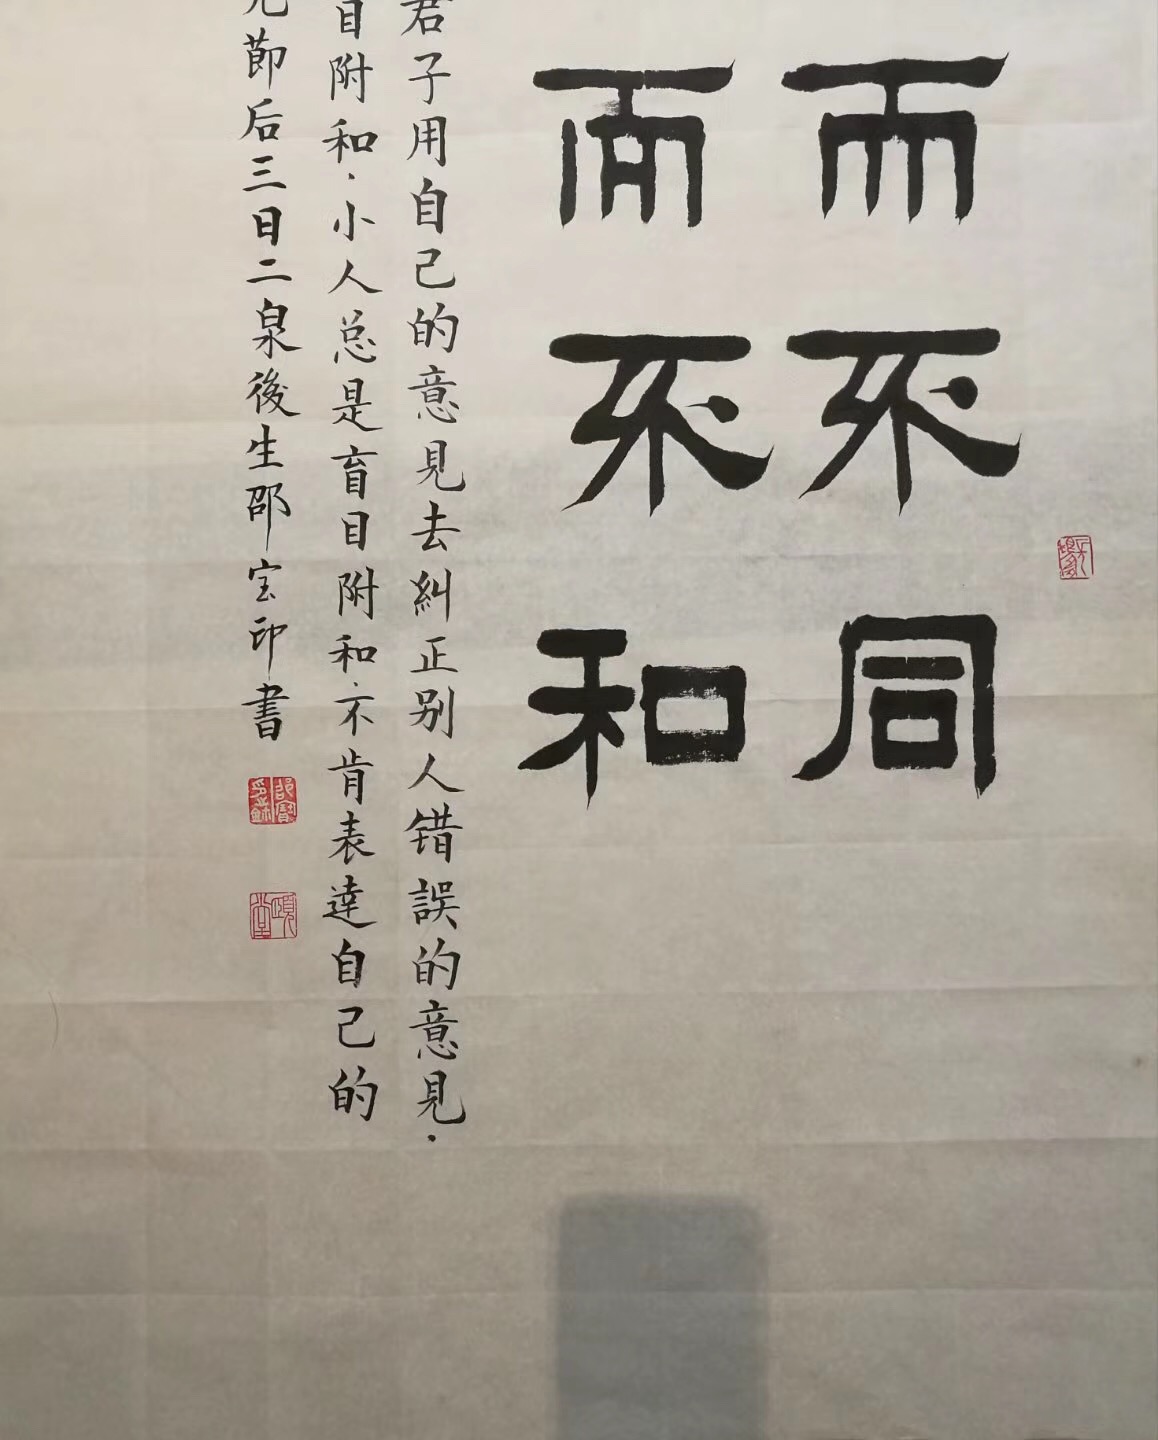 而不同
而不和
君子用自己的意見去糾正别人錯誤的意見.
目附和.小人总是盲目附和.不肯表達自己的
節后三日二泉後生邵宝印書